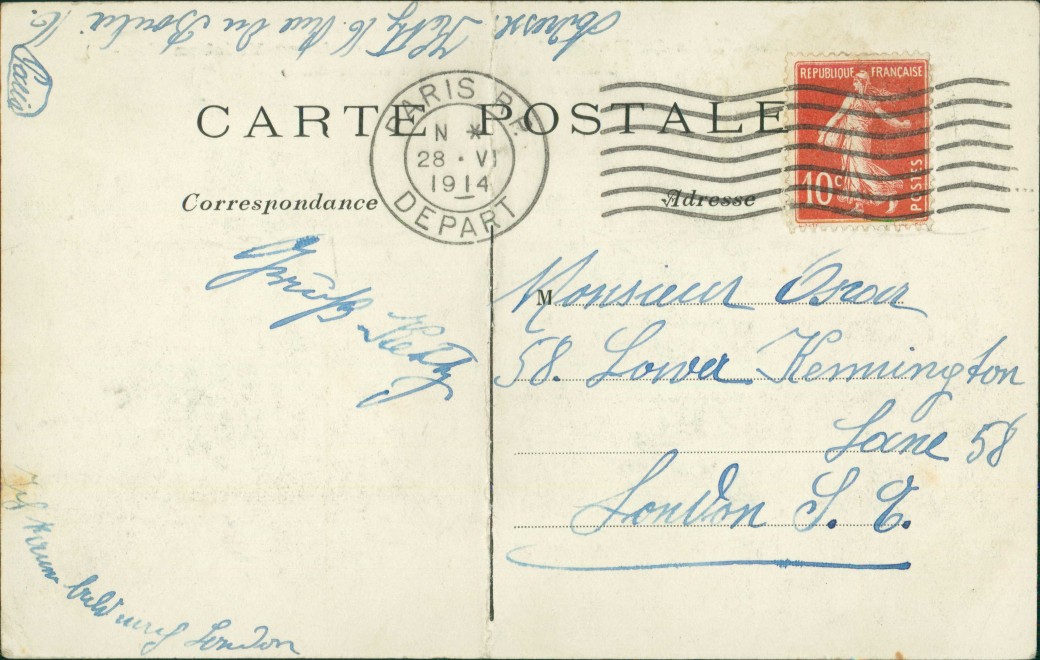 Adresse. Ketty 16 Rue du
Paris
CARTE POSTALE
PARIS
28 · VI
1914
DEPART
REPUBLIQUE FRANÇAISE
10c
POSTES
Correspondance
Adresse
Gruß Ketty
M Monsieur Oscar
58. Lower Kennington
Lane 58
London S. E.
Ich komm bald nach London